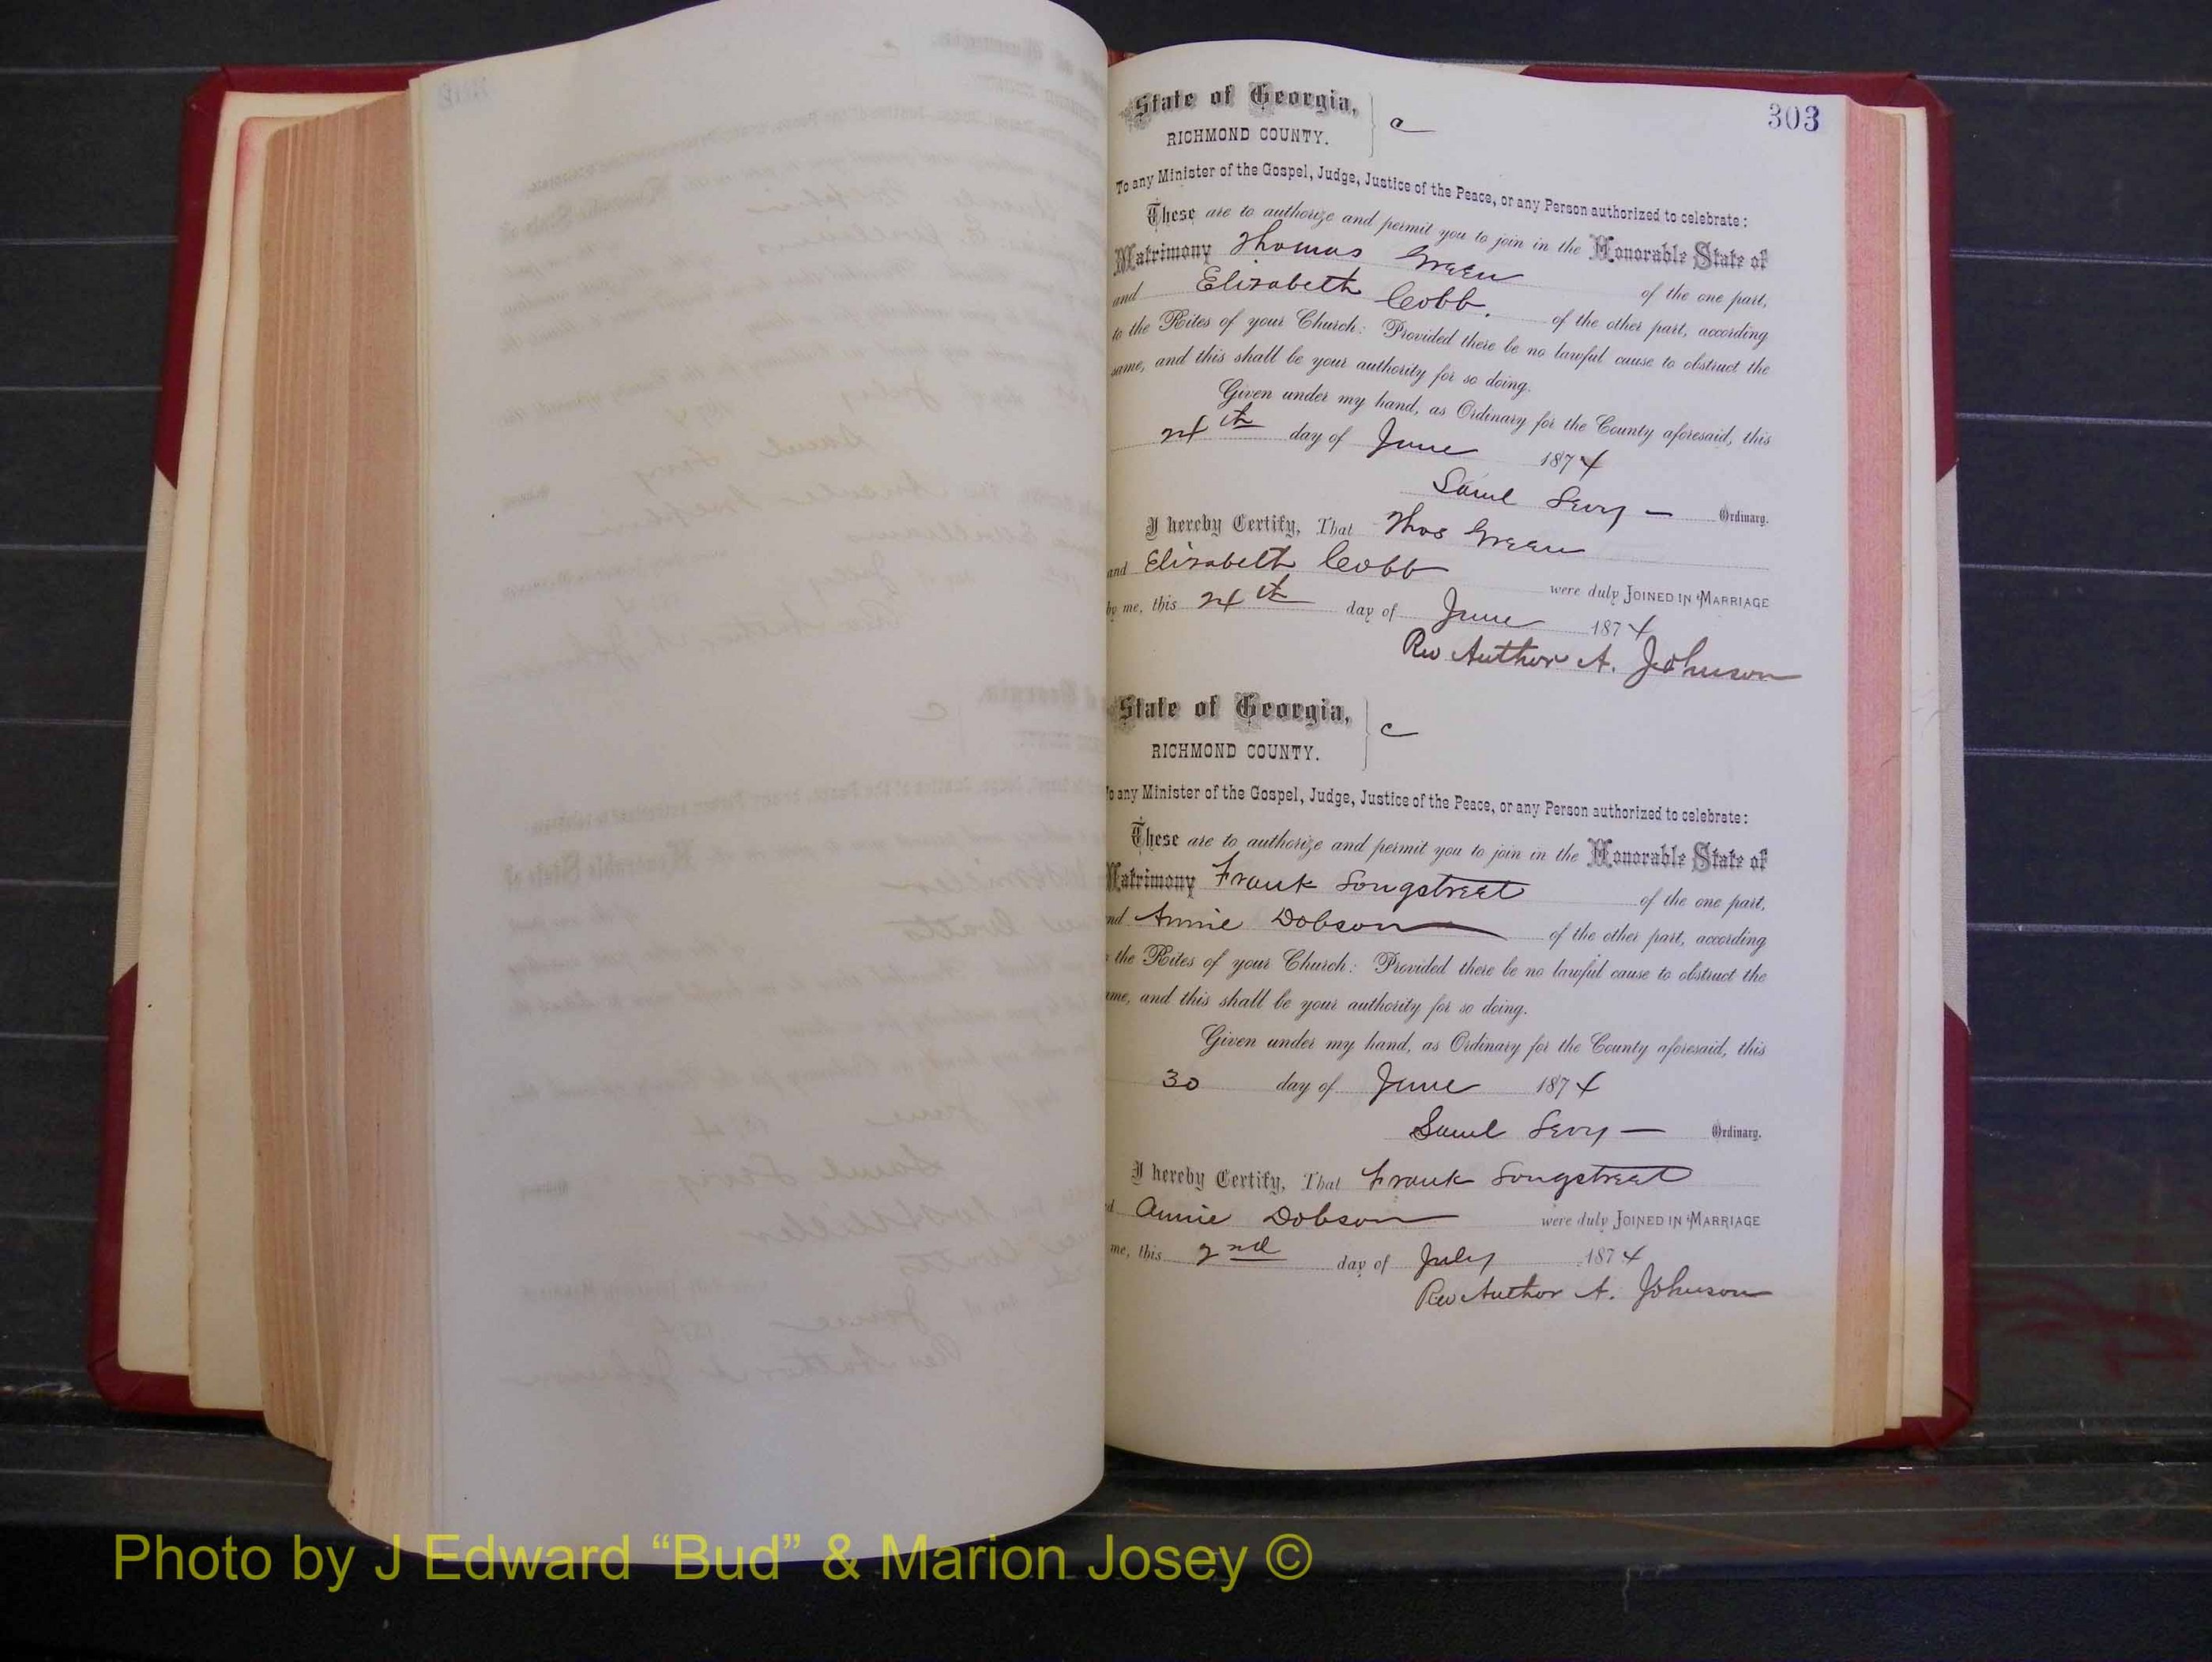 303
State of Georgia,
RICHMOND COUNTY.
C
To any Minister of the Gospel, Judge, Justice of the Peace, or any Person authorized to celebrate:
These are to authorize and permit you to join in the Honorable State of
Matrimony Thomas Green of the one part,
and Elizabeth Cobb. of the other part, according
to the Rites of your Church: Provided there be no lawful cause to obstruct the
same, and this shall be your authority for so doing.
Given under my hand, as Ordinary for the County aforesaid, this
24th day of June 1874
Saml Levy — Ordinary.
I hereby Certify, That Thos Green
and Elizabeth Cobb were duly JOINED IN MARRIAGE
by me, this 24th day of June 1874
Rev Author A. Johnson
State of Georgia,
RICHMOND COUNTY.
C
To any Minister of the Gospel, Judge, Justice of the Peace, or any Person authorized to celebrate:
These are to authorize and permit you to join in the Honorable State of
Matrimony Frank Longstreet of the one part,
nd Annie Dobson of the other part, according
the Rites of your Church: Provided there be no lawful cause to obstruct the
ame, and this shall be your authority for so doing.
Given under my hand, as Ordinary for the County aforesaid, this
30 day of June 1874
Saml Levy — Ordinary.
I hereby Certify, That Frank Longstreet
d Annie Dobson were duly JOINED IN MARRIAGE
me, this 2nd day of July 1874
Rev Author A. Johnson
Photo by J Edward “Bud” & Marion Josey ©